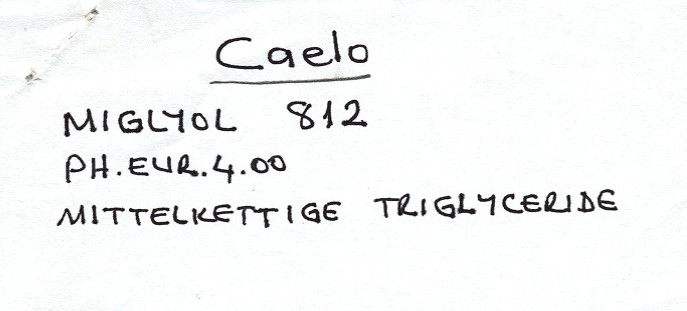 Caelo
MIGLYOL 812
PH.EUR.4.00
MITTELKETTIGE TRIGLYCERIDE